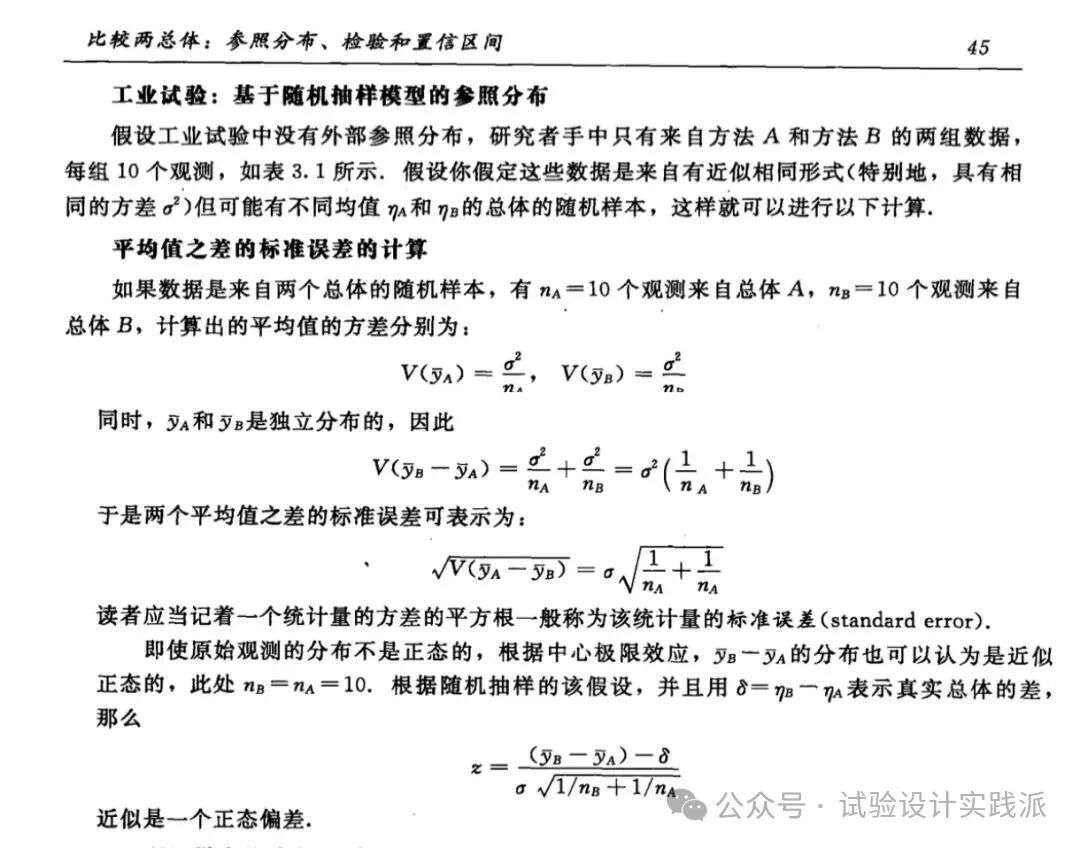 比较两总体：参照分布、检验和置信区间 45
工业试验：基于随机抽样模型的参照分布
假设工业试验中没有外部参照分布，研究者手中只有来自方法 A 和方法 B 的两组数据，
每组 10 个观测，如表 3.1 所示．假设你假定这些数据是来自有近似相同形式(特别地，具有相
同的方差 σ²)但可能有不同均值 ηA和 ηB的总体的随机样本，这样就可以进行以下计算．
平均值之差的标准误差的计算
如果数据是来自两个总体的随机样本，有 nA＝10 个观测来自总体 A，nB＝10 个观测来自
总体 B，计算出的平均值的方差分别为：
V(ȳA) = σ²/nA， V(ȳB) = σ²/nB
同时，ȳA和 ȳB是独立分布的，因此
V(ȳB − ȳA) = σ²/nA + σ²/nB = σ²(1/nA + 1/nB)
于是两个平均值之差的标准误差可表示为：
√V(ȳA − ȳB) = σ√(1/nA + 1/nA)
读者应当记着一个统计量的方差的平方根一般称为该统计量的标准误差(standard error)．
即使原始观测的分布不是正态的，根据中心极限效应，ȳB－ȳA的分布也可以认为是近似
正态的，此处 nB＝nA＝10．根据随机抽样的该假设，并且用 δ＝ηB－ηA表示真实总体的差，
那么
z = ((ȳB − ȳA) − δ)/(σ√(1/nB + 1/nA))
公众号 · 试验设计实践派
近似是一个正态偏差．